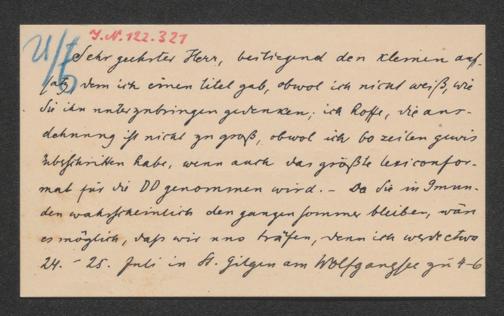 J.N. 122.321
Sehr geehrter Herr, beiliegend den kleinen auf-
satz, dem ich einen titel gab, obwol ich nicht weiß, wie
Sie ihn unterzubringen gedenken; ich hoffe, die aus-
dehnung ist nicht zu groß, obwol ich 60 zeilen gewis
überschritten habe, wenn auch das größte lexiconfor-
mat für die DD genommen wird. – Da Sie in Gmun-
den wahrscheinlich den ganzen sommer bleiben, wäre
es möglich, daß wir uns träfen, denn ich werde etwa
24. – 25. Juli in St. Gilgen am Wolfgangsee zu 4-6